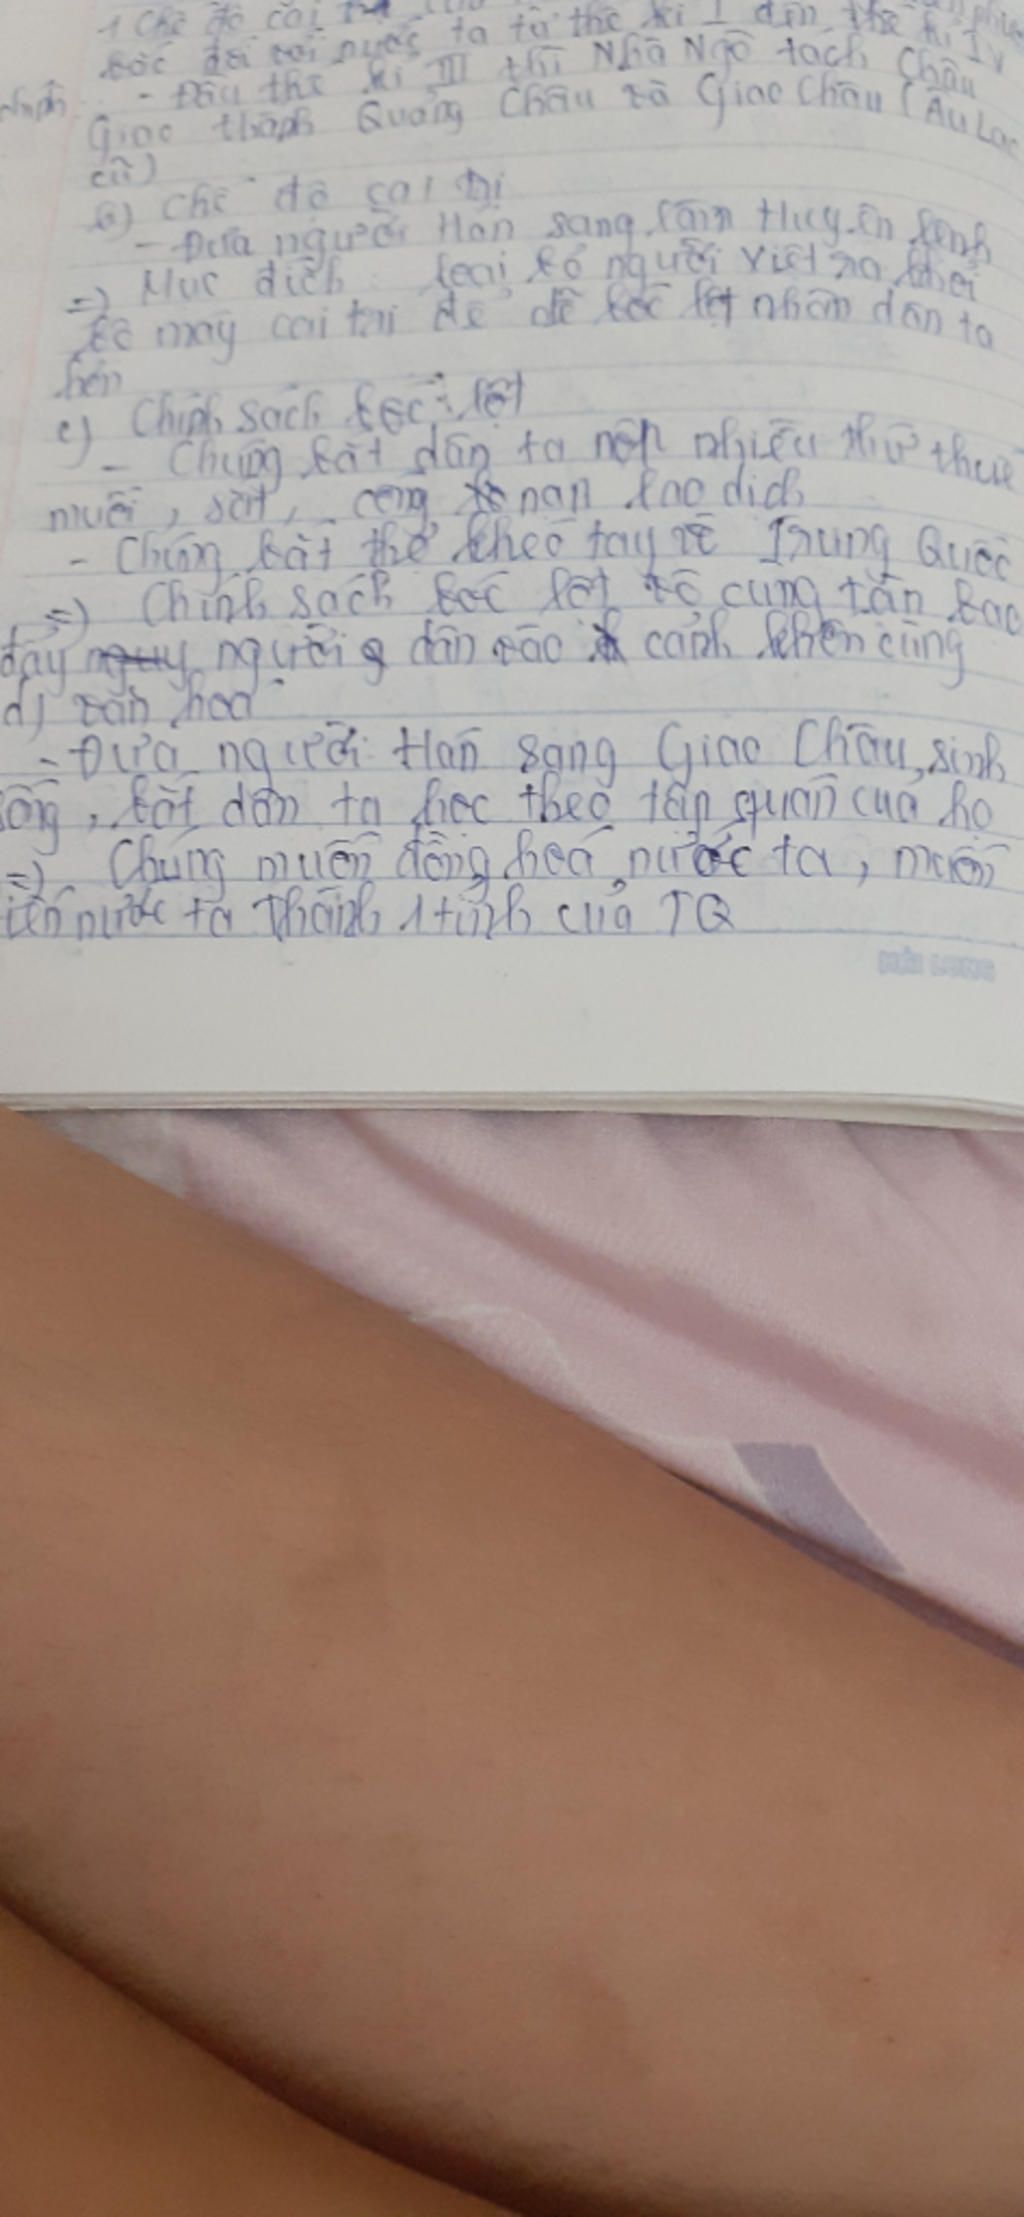 1 Chế độ cai
bốc đối với nước ta từ thế kỉ I đến thế kỉ IV
- Đầu thế kỉ III thì Nhà Ngô tách Châu
Giao thành Quảng Châu và Giao Châu (Âu Lạc
cũ)
b) Chế độ cai trị
- Đưa người Hán sang làm Huyện lệnh
=> Mục đích: loại bỏ người Việt ra khỏi
bộ máy cai trị để dễ bóc lột nhân dân ta
hơn
c) Chính sách bóc lột
- Chúng bắt dân ta nộp nhiều thứ thuế
muối, sắt, cống nạp lao dịch
- Chúng bắt thợ khéo tay về Trung Quốc
=> Chính sách bóc lột vô cùng tàn bạo
đẩy người dân vào cảnh khốn cùng
d) văn hoá
- Đưa người Hán sang Giao Châu, sinh
sống, bắt dân ta học theo tập quán của họ
=> Chúng muốn đồng hoá nước ta, muốn
biến nước ta thành 1 tỉnh của TQ
HẢI LONG